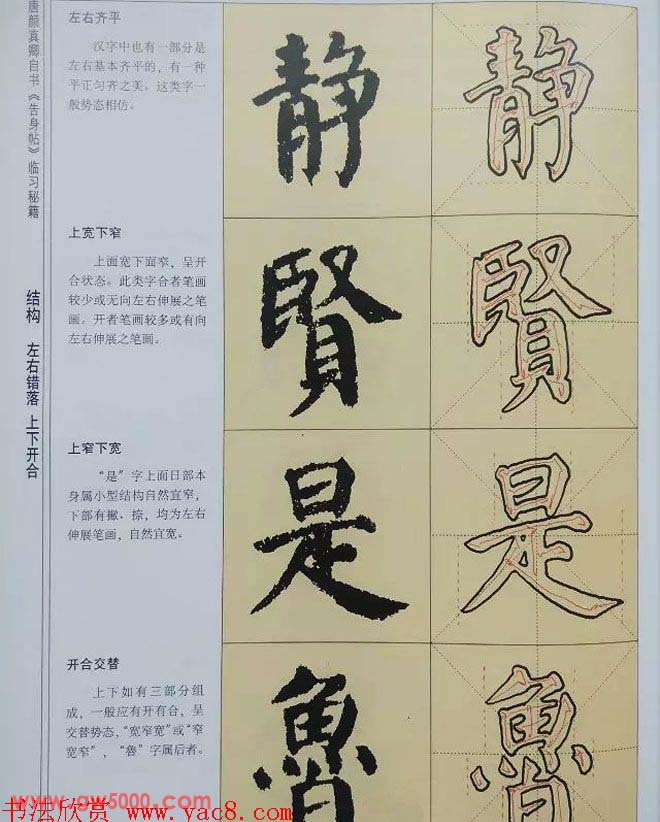 唐颜真卿自书《告身帖》临习秘籍
结构 左右错落 上下开合
左右齐平
汉字中也有一部分是
左右基本齐平的，有一种
平正匀齐之美。这类字一
般势态相仿。
静 静
上宽下窄
上面宽下面窄，呈开
合状态。此类字合者笔画
较少或无向左右伸展之笔
画。开者笔画较多或有向
左右伸展之笔画。
賢 賢
上窄下宽
“是”字上面日部本
身属小型结构自然宜窄，
下部有撇、捺，均为左右
伸展笔画，自然宜宽。
是 是
开合交替
上下如有三部分组
成，一般应有开有合，呈
交替势态，“宽窄宽”或“窄
宽窄”，“鲁”字属后者。
魯 魯
www.gw5000.com
书法欣赏 www.yac8.com